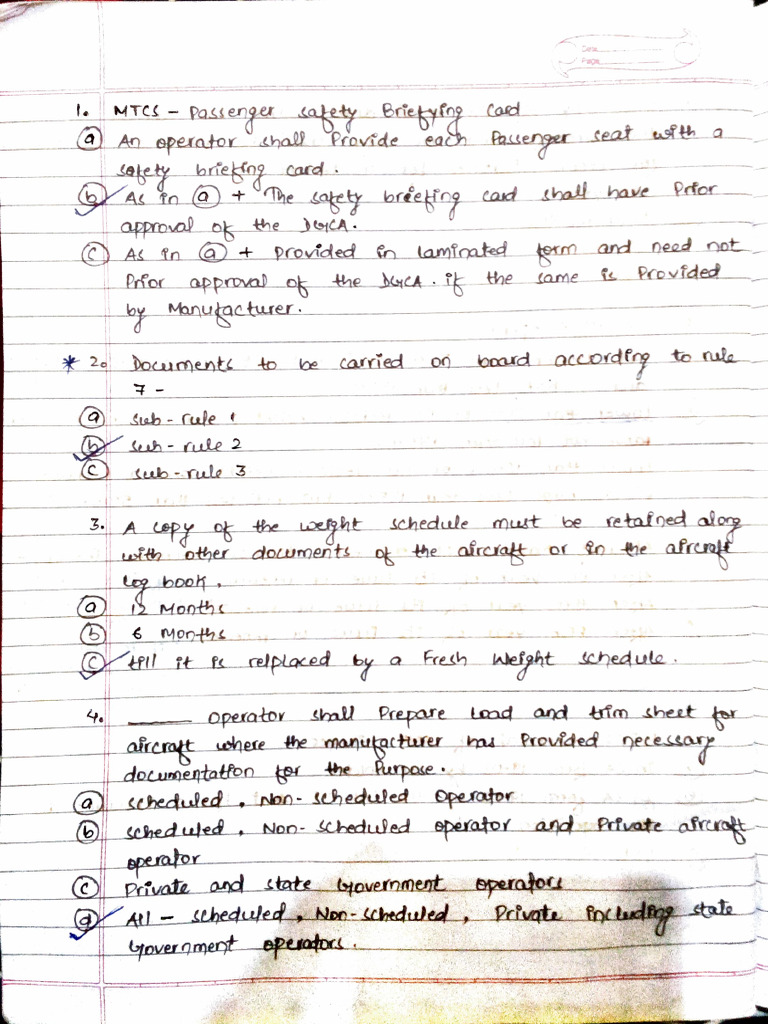 Date
Page
1. MTCS - Passenger safety Briefying Card
(a) An operator shall Provide each Passenger seat with a
safety briefing card.
(b) As in (a) + The safety briefing card shall have Prior
approval of the DGCA.
(c) As in (a) + Provided in laminated form and need not
Prior approval of the DGCA. if the same is Provided
by Manufacturer.
* 2. Documents to be carried on board according to rule
7 -
(a) sub-rule 1
(b) sub-rule 2
(c) sub-rule 3
3. A copy of the weight schedule must be retained along
with other documents of the aircraft or in the aircraft
log book.
(a) 12 Months
(b) 6 Months
(c) till it is relplaced by a Fresh Weight schedule.
4. _____ operator shall Prepare Load and trim sheet for
aircraft where the manufacturer has Provided necessary
documentation for the Purpose.
(a) scheduled, Non-scheduled Operator
(b) scheduled, Non-scheduled operator and Private aircraft
operator
(c) Private and state Government operators
(d) All - scheduled, Non-scheduled, Private including state
Government operators.